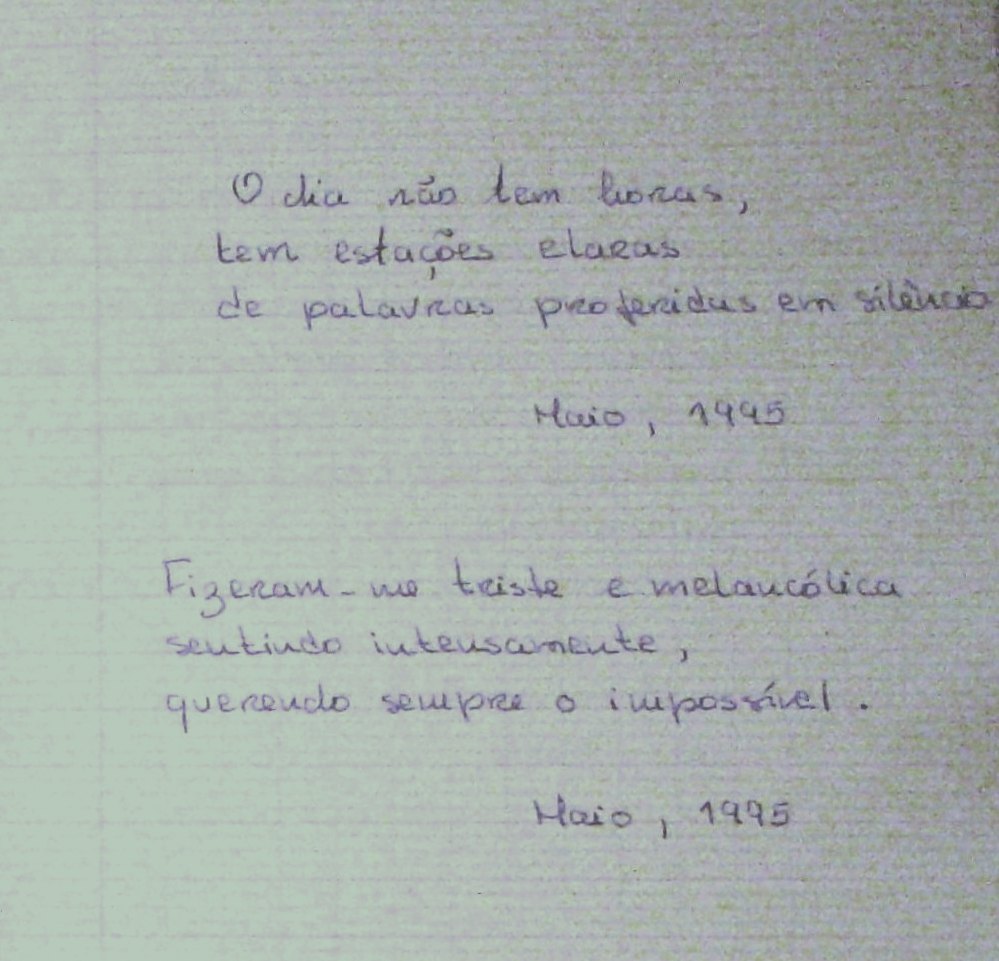 O dia não tem horas,
tem estações claras
de palavras proferidas em silêncio
Maio, 1995
Fizeram-me triste e melancólica
sentindo intensamente,
querendo sempre o impossível.
Maio, 1995